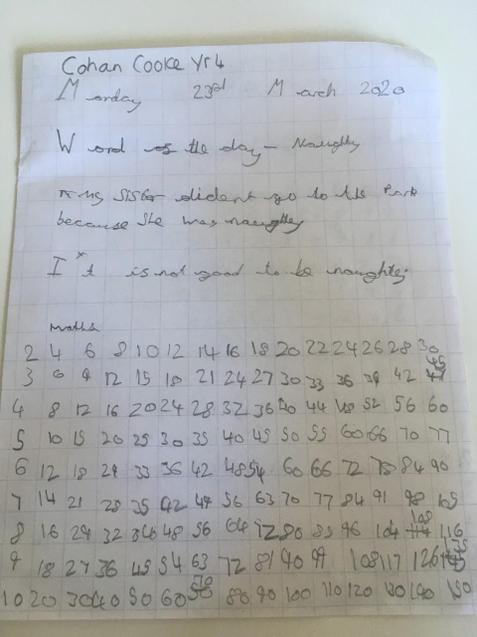 Cohan Cooke Yr4
Monday 23rd March 2020
Word of the day - Naughty
my sister dident go to the Park
because she was naughty
It is not good to be naughty.
maths
2 4 6 8 10 12 14 16 18 20 22 24 26 28 30
3 6 9 12 15 18 21 24 27 30 33 36 39 42 45
4 8 12 16 20 24 28 32 36 40 44 48 52 56 60
5 10 15 20 25 30 35 40 45 50 55 60 66 70 77
6 12 18 24 33 36 42 48 54 60 66 72 78 84 90
7 14 21 28 35 42 49 56 63 70 77 84 91 98 105
8 16 24 32 48 56 64 72 80 96 104 108 116
9 18 27 36 45 54 63 72 81 90 99 108 117 126 135
10 20 30 40 50 60 70 80 90 100 110 120 130 140 150